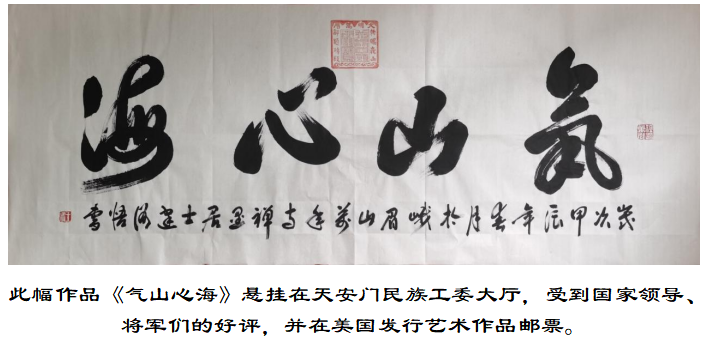 氣山心海
歲次甲辰年春月於峨眉山萬年寺禅墨居士書
此幅作品《气山心海》悬挂在天安门民族工委大厅，受到国家领导、
将军们的好评，并在美国发行艺术作品邮票。